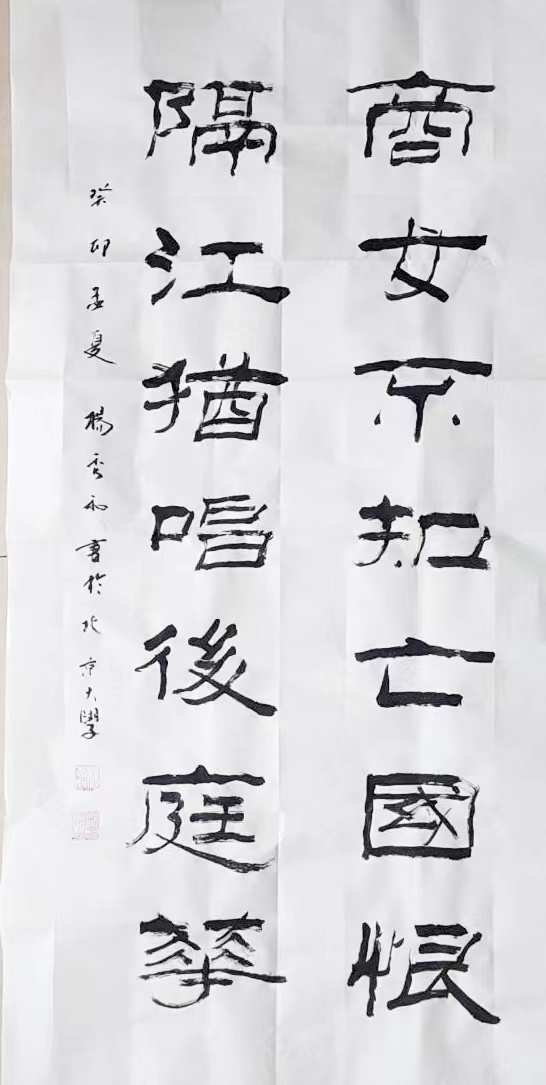 商女不知亡國恨
隔江猶唱後庭華
癸卯孟夏 楊秀和書於北京大學